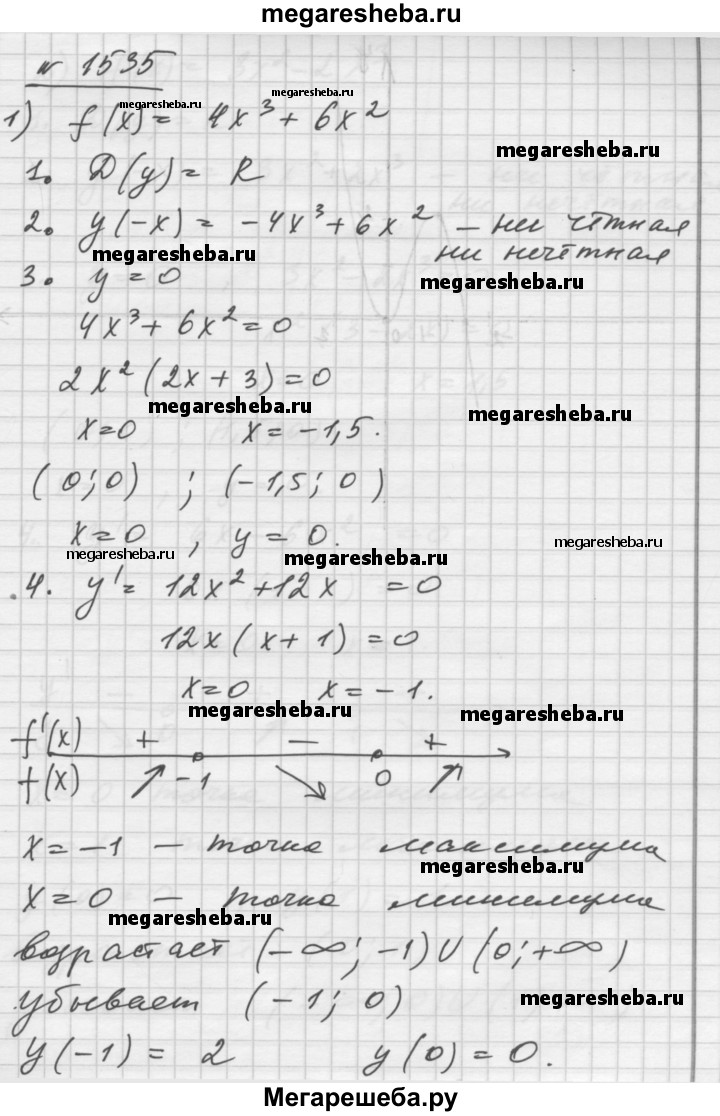 megaresheba.ru
N 1535
megaresheba.ru
megaresheba.ru
1) f(x) = 4x³ + 6x²
megaresheba.ru
1. D(y) = R
2. y(-x) = -4x³ + 6x² – ни чётная
ни нечётная
megaresheba.ru
3. y = 0
megaresheba.ru
4x³ + 6x² = 0
2x²(2x + 3) = 0
megaresheba.ru
megaresheba.ru
x = 0 x = -1,5.
(0; 0) ; (-1,5; 0)
x = 0 , y = 0.
megaresheba.ru
megaresheba.ru
megaresheba.ru
4. y' = 12x² + 12x = 0
12x(x + 1) = 0
x = 0 x = -1.
megaresheba.ru
megaresheba.ru
f'(x) + – +
f(x) ↗ -1 ↘ 0 ↗
x = -1 – точка максимума
megaresheba.ru
x = 0 – точка минимума
megaresheba.ru
возрастает (-∞; -1) U (0; +∞)
убывает (-1; 0)
megaresheba.ru
y(-1) = 2 y(0) = 0.
Мегарешеба.ру